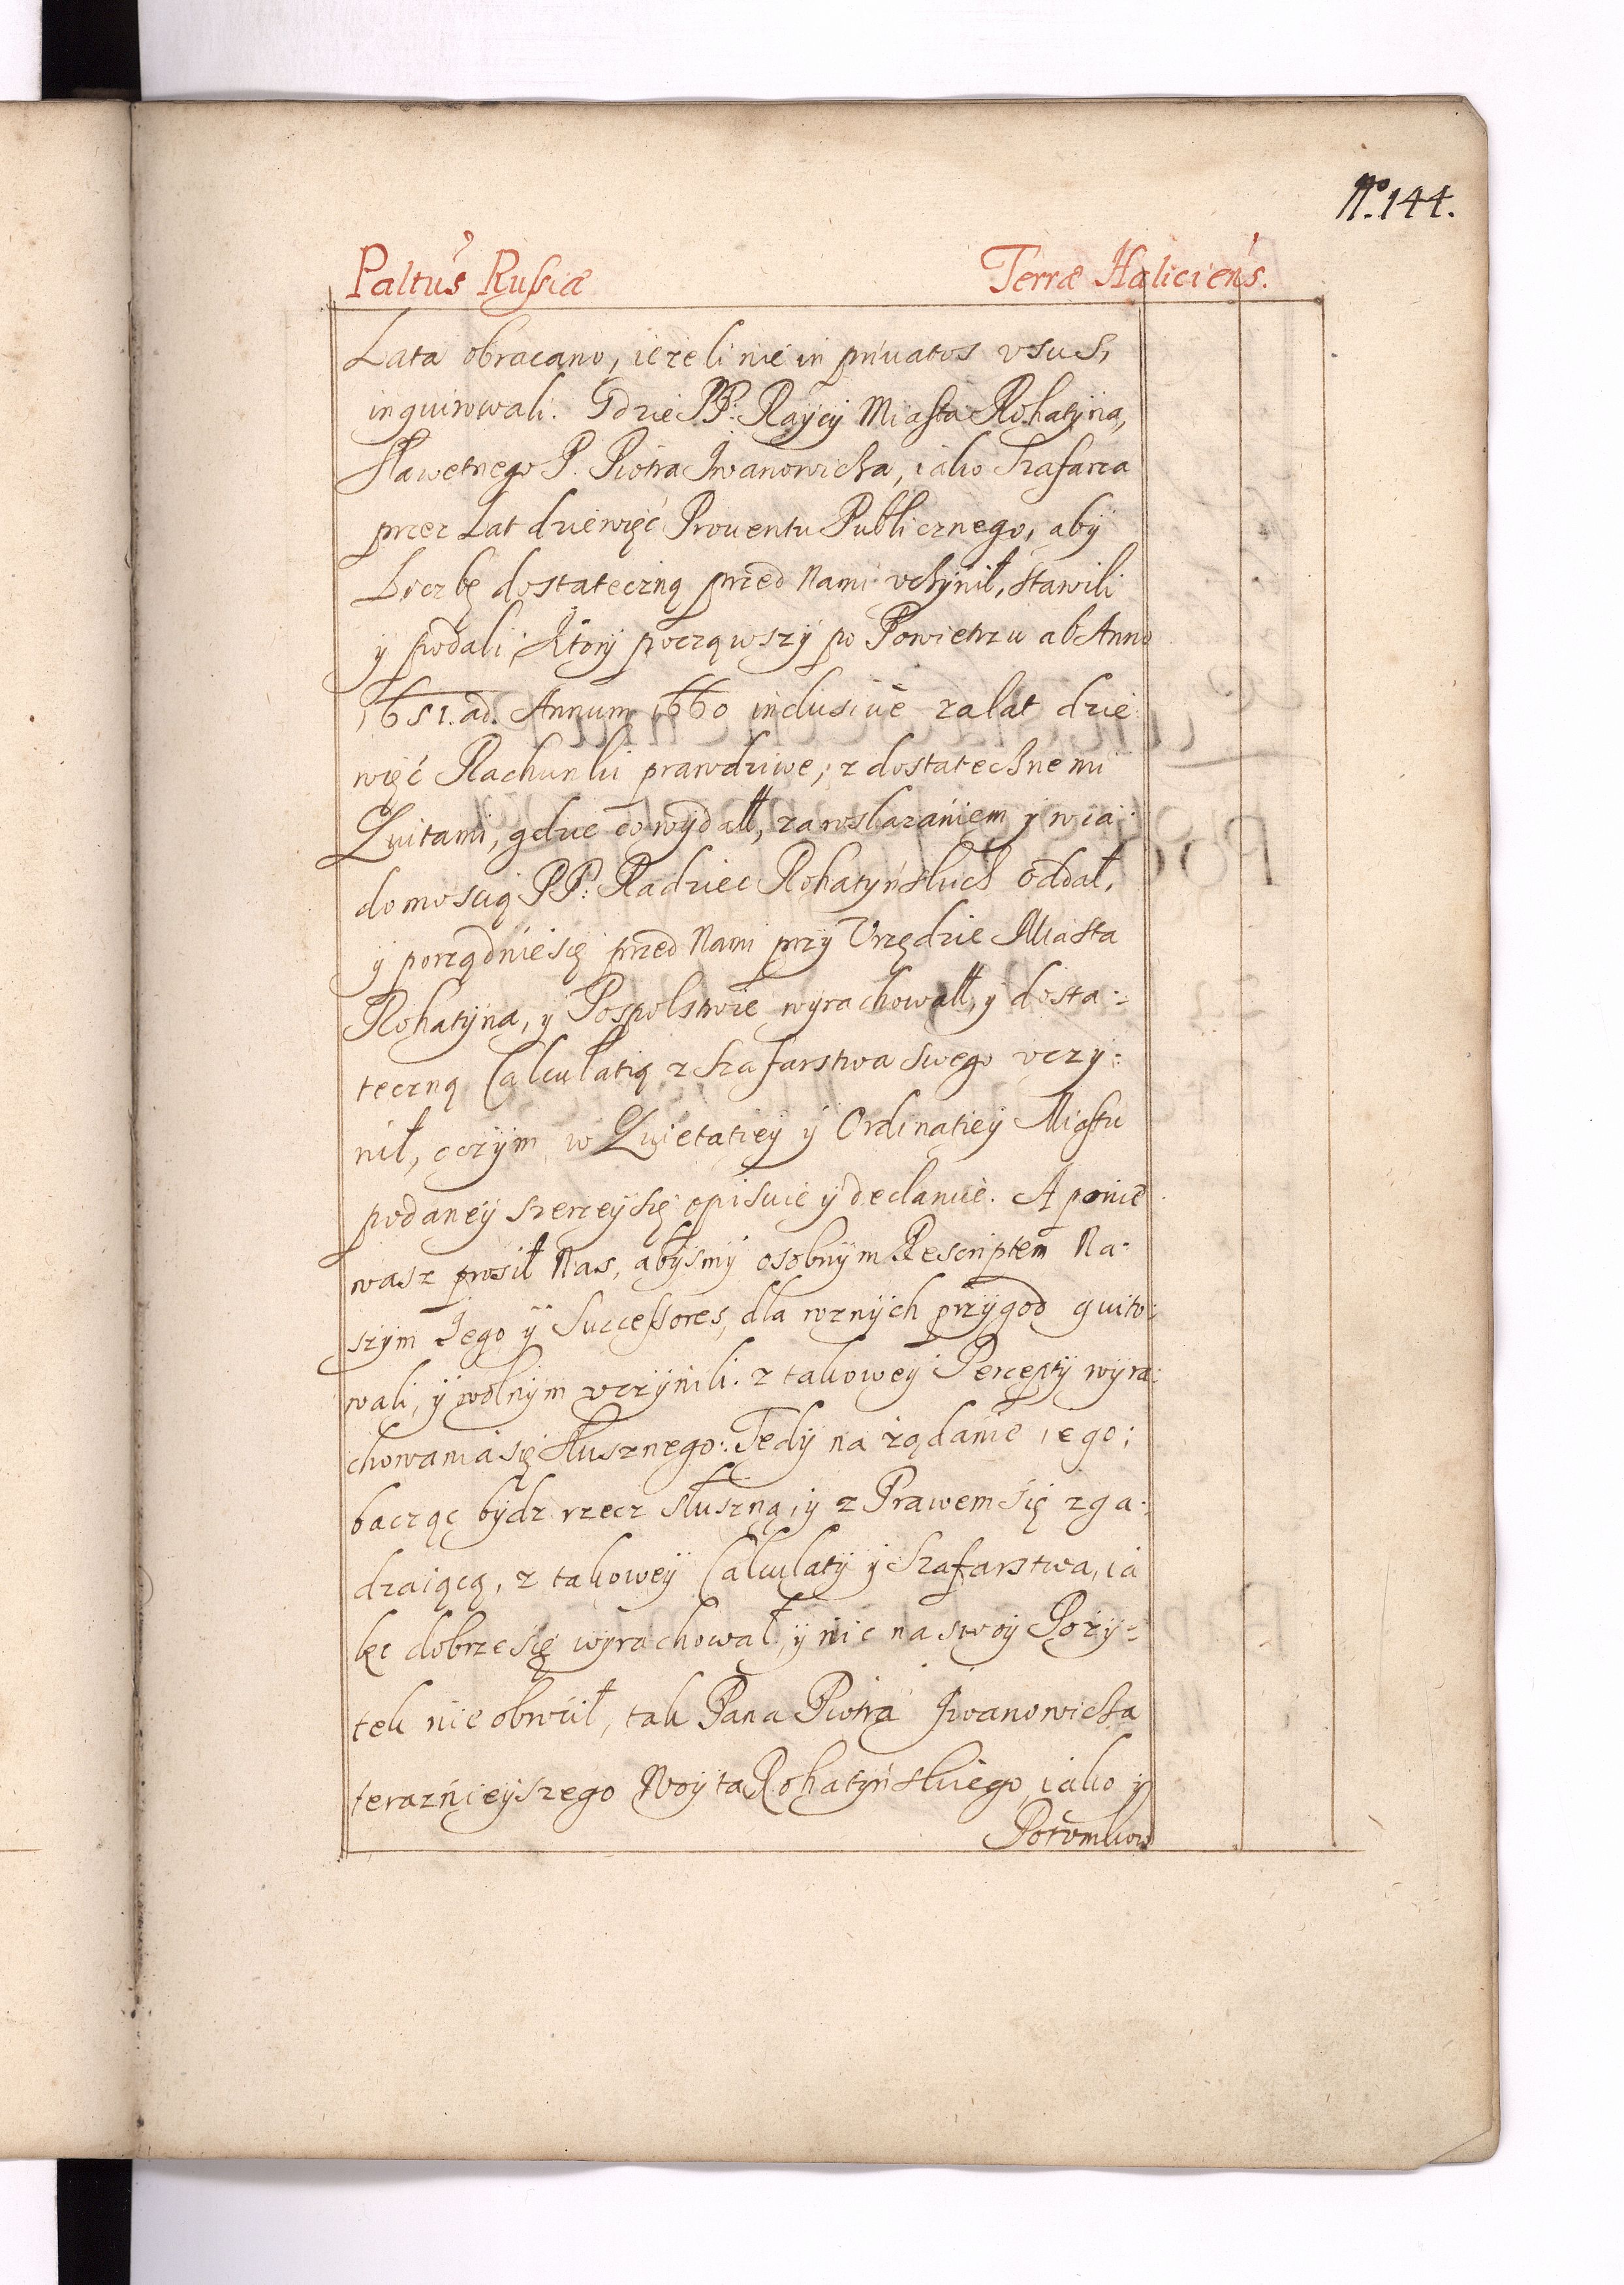 No. 144.
Paltus Russiæ Terræ Haliciens.
Lata obracano, ieżeli nie in priuatos vsus,
inquirowali. Gdzie PP: Raycy Miasta Rohatyna,
Sławetnego P. Piotra Iwanowicha, iako Szafarza
przez Lat dziewięć Prouentu Publicznego, aby
Liczbę dostateczną przed Nami vchynił, stawili
y podali; Ktory począwszy po Powietrzu ab Anno
1651. ad. Annum 1660 inclusiuè za lat dzie
więć Rachunki prawdziwe; z dostatechnemi
Quitami, gdzie co wydałł, za wskazaniem y wia:
domoscią PP: Radziec Rohatyńskich oddał,
y porządnie się przed Nami przy Vrzędzie Miasta
Rohatyna, y Pospolstwie wyrachowałł, y dosta:
teczną Calculatią z Szafarstwa swego vczy:
nił, oczym w Quietatiey y Ordinatiey Miastu
podaney szerzey się opisuie y declaruie. A ponie
wasz prosił Nas, abysmy osobnym Rescriptem Na:
szym Iego y Successores, dla roznych przygod quito:
wali, y wolnym vczynili. z takowey Percepty wyra:
chowania się słusznego: Tedy na żądanie iego;
bacząc bydz rzecz słuszną, y z Prawem się zga:
dzaiącą, z takowey Calculaty y Szafarstwa, ia
ko dobrze się wyrachował, y nic na swoy Poży:
tek nie obrocił, tak Pana Piotra Iwanowicha
terazńieyszego Woyta Rohatyńskiego iako y
Potomkow